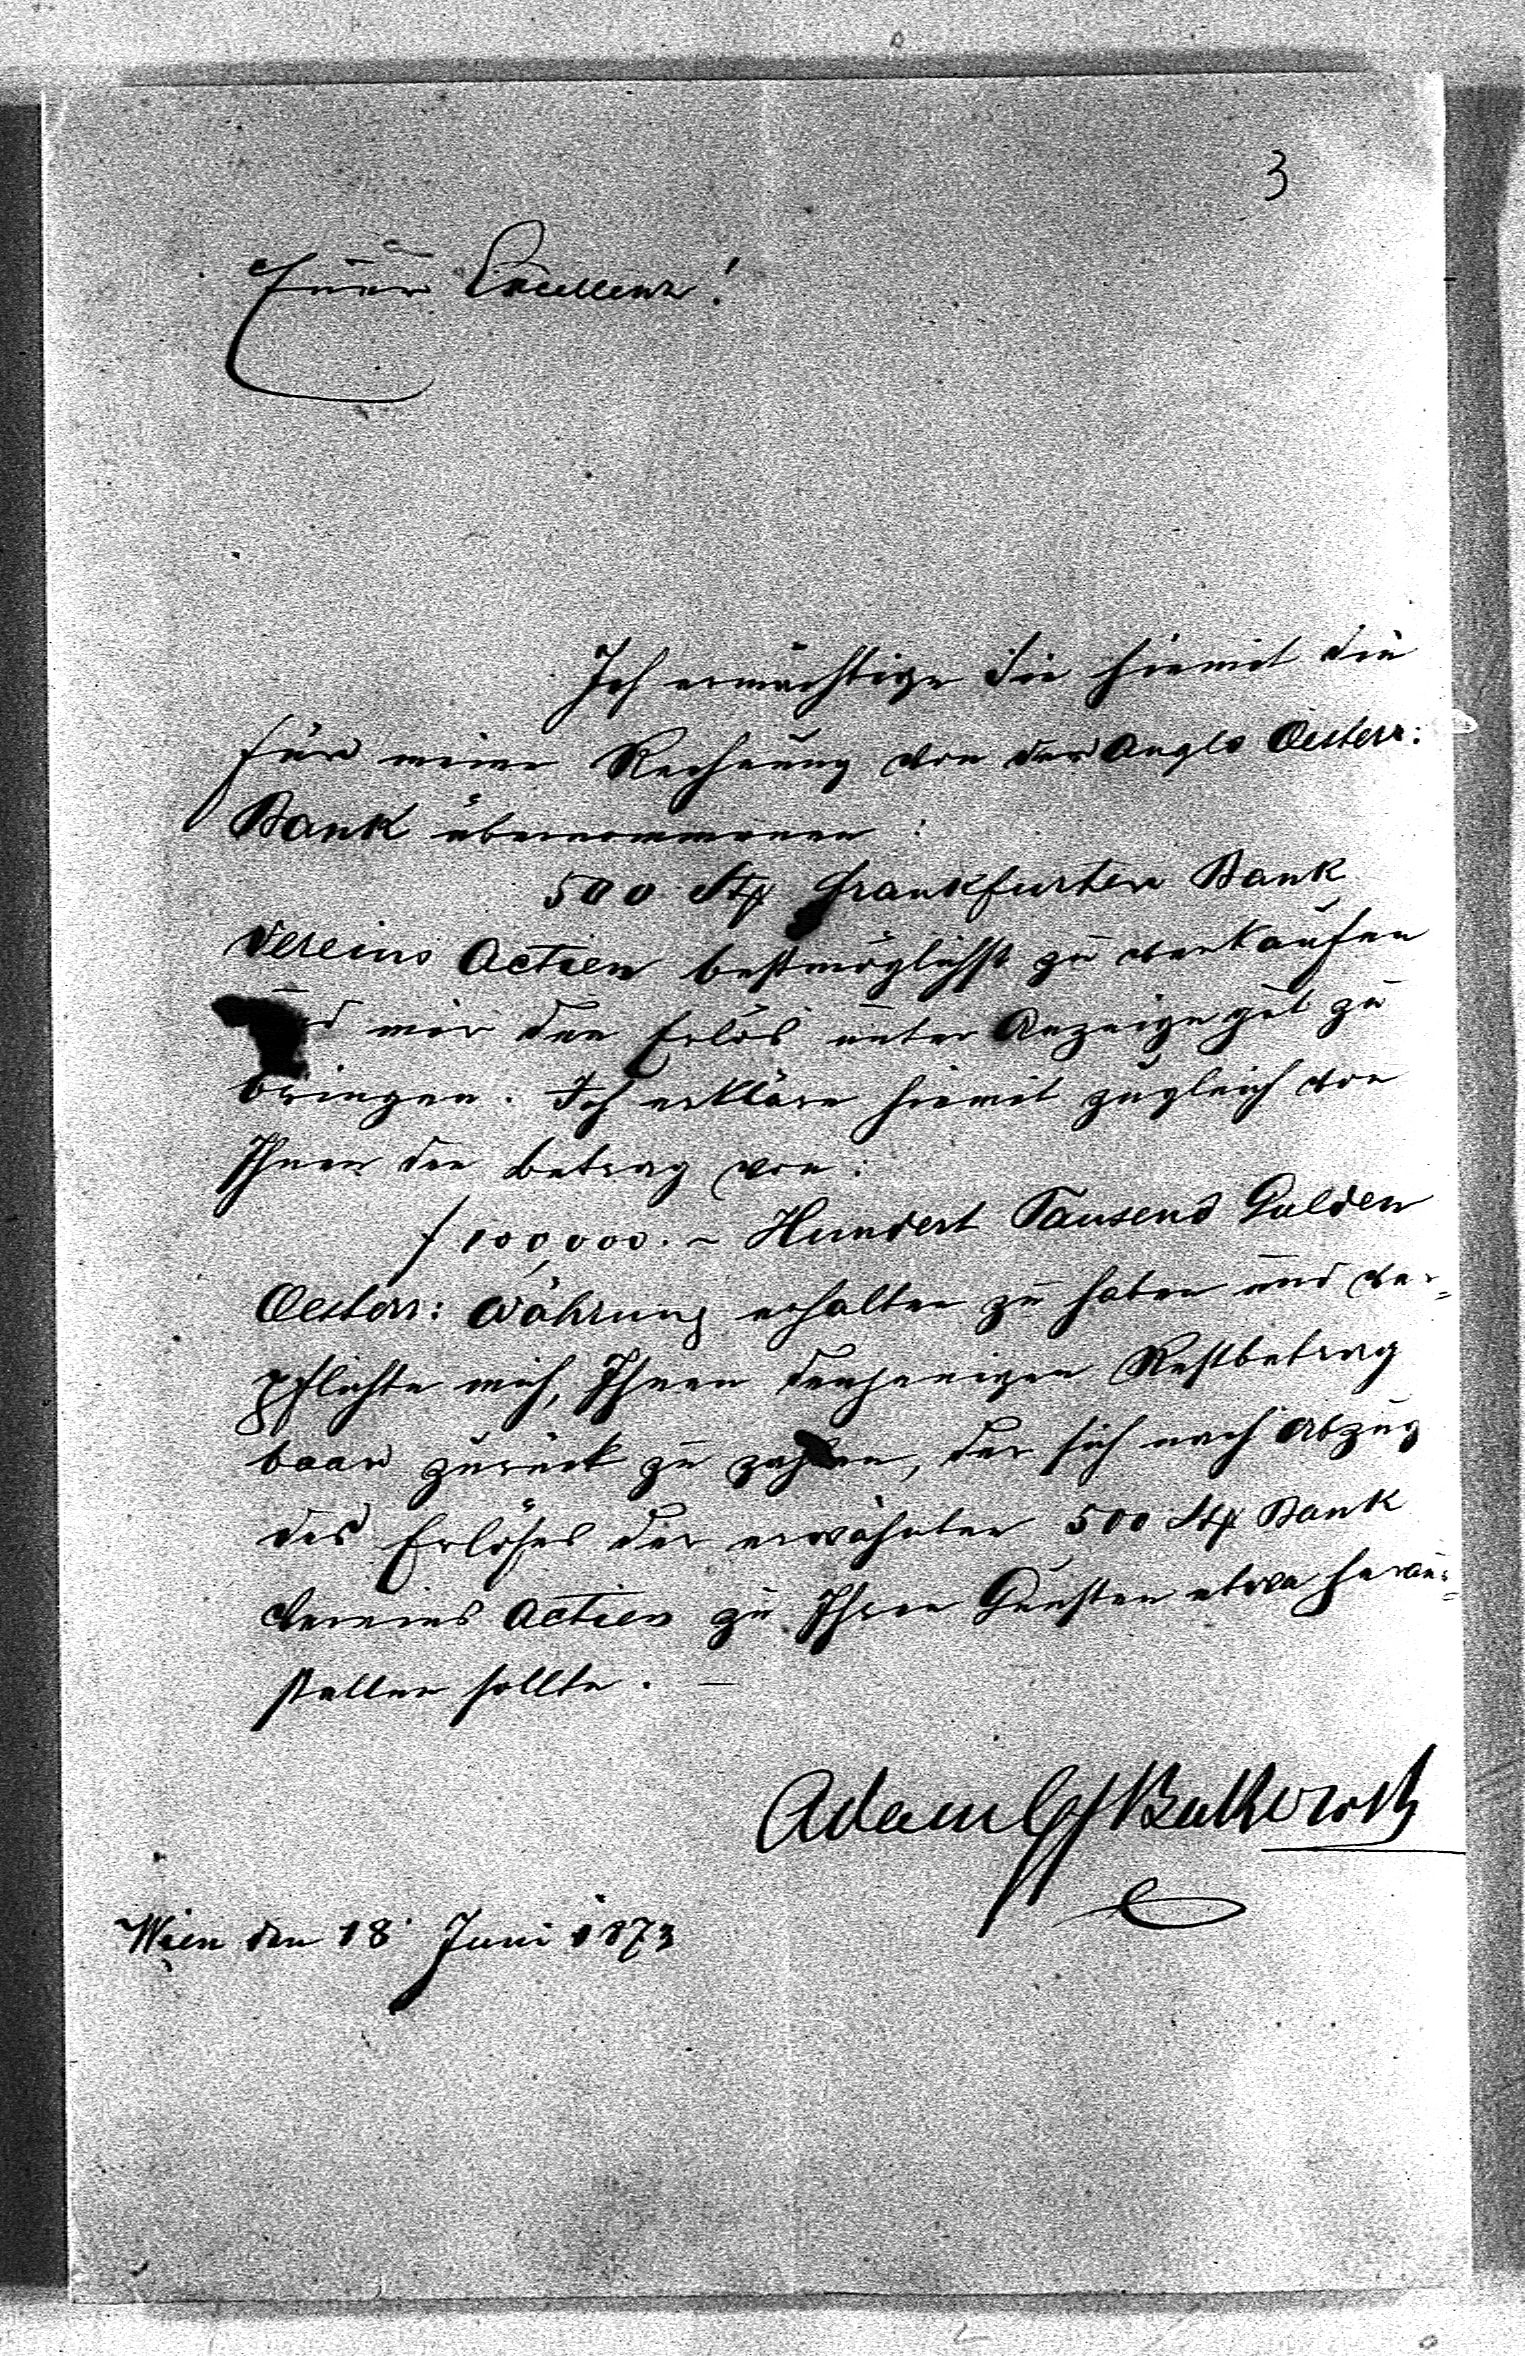 3
Euer Excellenz!
Ich ermächtige Sie hiemit die
für meine Rechnung von der Anglo Oesterr:
Bank übernommenen:
500 Stk Frankfurter Bank
Vereins Actien bestmöglichst zu verkaufen
und mir den Erlös unter Anzeige gut zu
bringen. Ich erkläre hiemit zugleich von
Ihnen den Betrag von:
f 100,000.- Hundert Tausend Gulden
Oesterr: Währung erhalten zu haben und ver=
pflichte mich, Ihnen denjenigen Restbetrag
baar zurück zu zahlen, der sich nach Abzug
des Erlöses der erwähnten 500 Stk Bank
Vereins Actien zu Ihren Gunsten etwa heraus=
stellen sollte. –
Adam
Wien den 18 Juni 1873